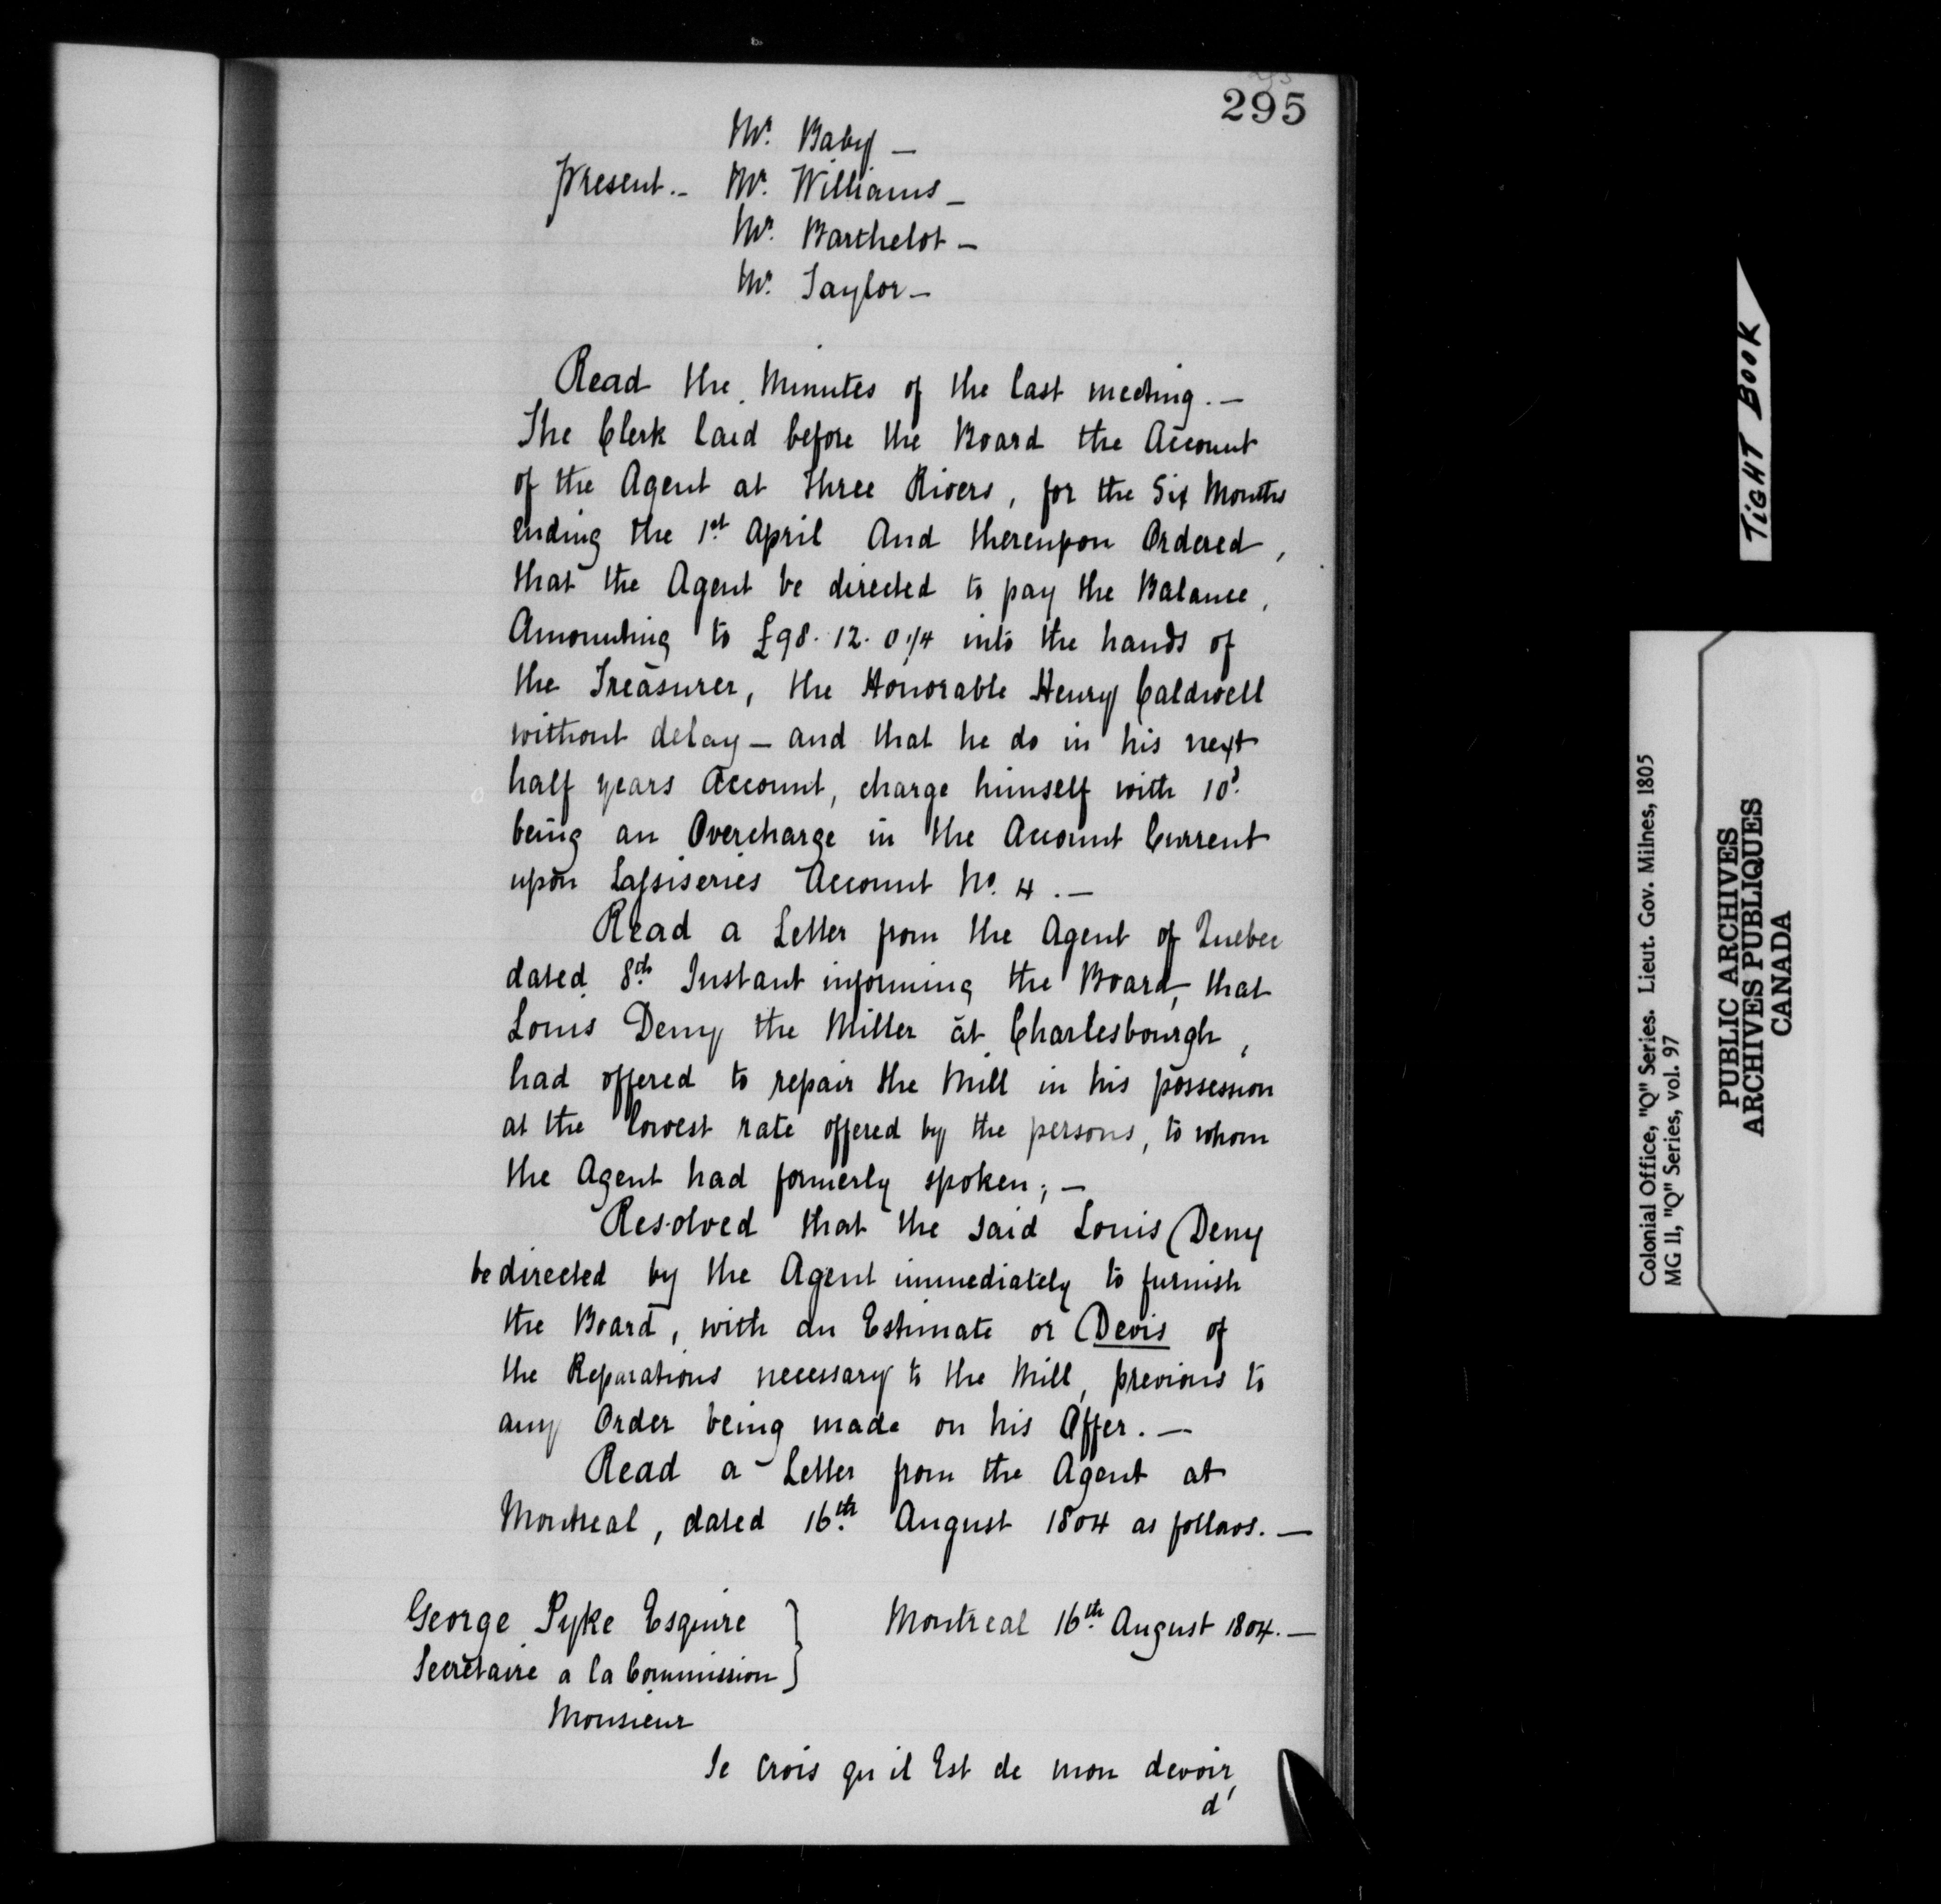 295
Mr. Baby —
Present. — Mr. Williams —
Mr. Barthelot —
Mr. Taylor —
Read the Minutes of the last meeting. —
The Clerk laid before the Board the Account
of the Agent at Three Rivers, for the Six Months
ending the 1st April And thereupon Ordered,
that the Agent be directed to pay the Balance,
Amounting to £98. 12. 0 1/4 into the hands of
the Treasurer, the Honorable Henry Caldwell
without delay — and that he do in his next
half years Account, charge himself with 10d.
being an Overcharge in the Account Current
upon Lassiseries Account No. 4. —
Read a Letter from the Agent of Quebec
dated 8th Instant informing the Board, that
Louis Demy the Miller at Charlesbourgh,
had offered to repair the Mill in his possession
at the lowest rate offered by the persons, to whom
the Agent had formerly spoken; —
Resolved that the said Louis Demy
be directed by the Agent immediately to furnish
the Board, with an Estimate or Devis of
the Reparations necessary to the Mill, previous to
any Order being made on his Offer. —
Read a Letter from the Agent at
Montreal, dated 16th August 1804 as follows. —
George Pyke Esquire
Secretaire a la Commission
Montreal 16th August 1804. —
Monsieur
Je crois qu il Est de mon devoir
d'
TIGHT BOOK
Colonial Office, "Q" Series. Lieut. Gov. Milnes, 1805
MG 11, "Q" Series, vol. 97
PUBLIC ARCHIVES
ARCHIVES PUBLIQUES
CANADA